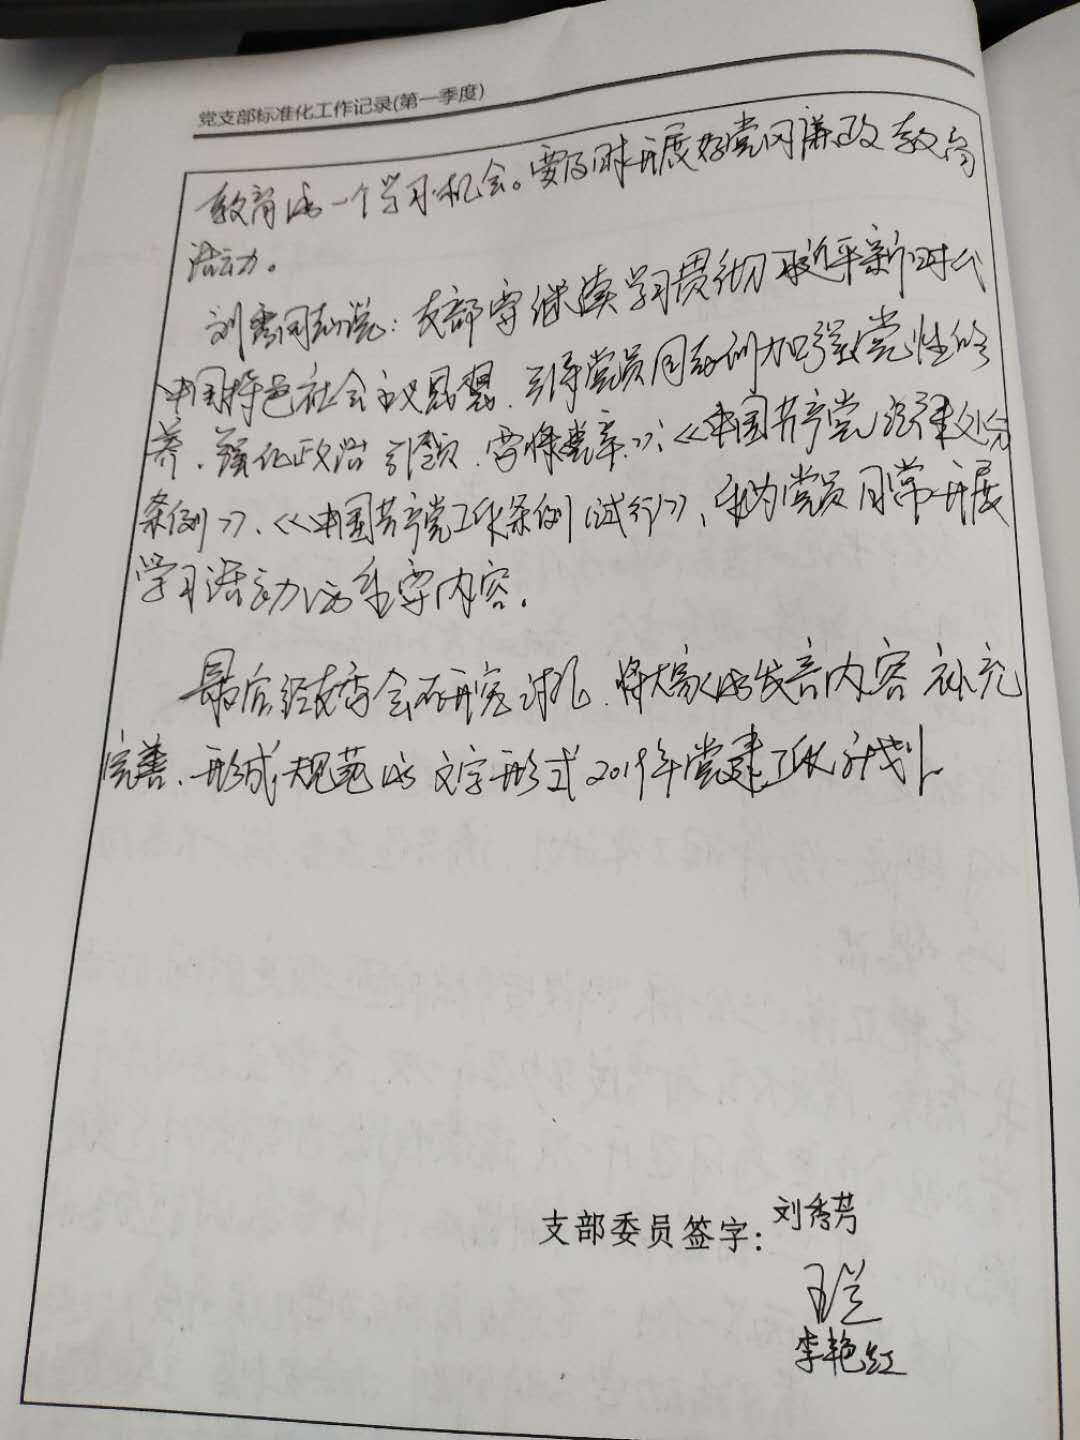 党支部标准化工作记录(第一季度)
教育的一个学习机会。要及时开展好党风廉政教育
活动。
刘秀同志说：支部要继续学习贯彻习近平新时代
中国特色社会主义思想、引导党员同志们加强党性修
养、强化政治引领、要将党章》；《中国共产党纪律处分
条例》、《中国共产党工作条例（试行）》、作为党员日常开展
学习活动的重要内容.
最后经支委会研究讨论、将大家的发言内容补充
完善、形成规范的文字形式2019年党建工作计划。
支部委员签字：刘秀芳
李艳红